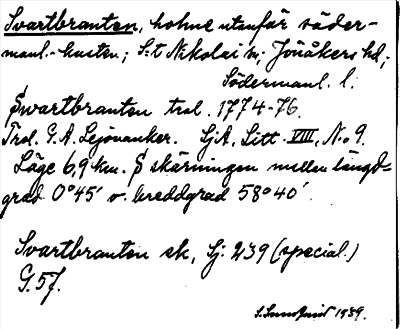 Svartbranten, holme utanför söder-
manl.-kusten; S:t Nikolai sn; Jönåkers hd,
Södermanl. l.
Svartbranten trol. 1774-76.
Trol. G.A. Lejonanker. SjA, Litt. VIII, No 9.
Läge 6,9 km. S skärningen mellan längd-
grad 0°45' o. breddgrad 58°40'.
Svartbranten sk, Sj: 239 (special.)
G.5f.
S. Sundqvist 1939.